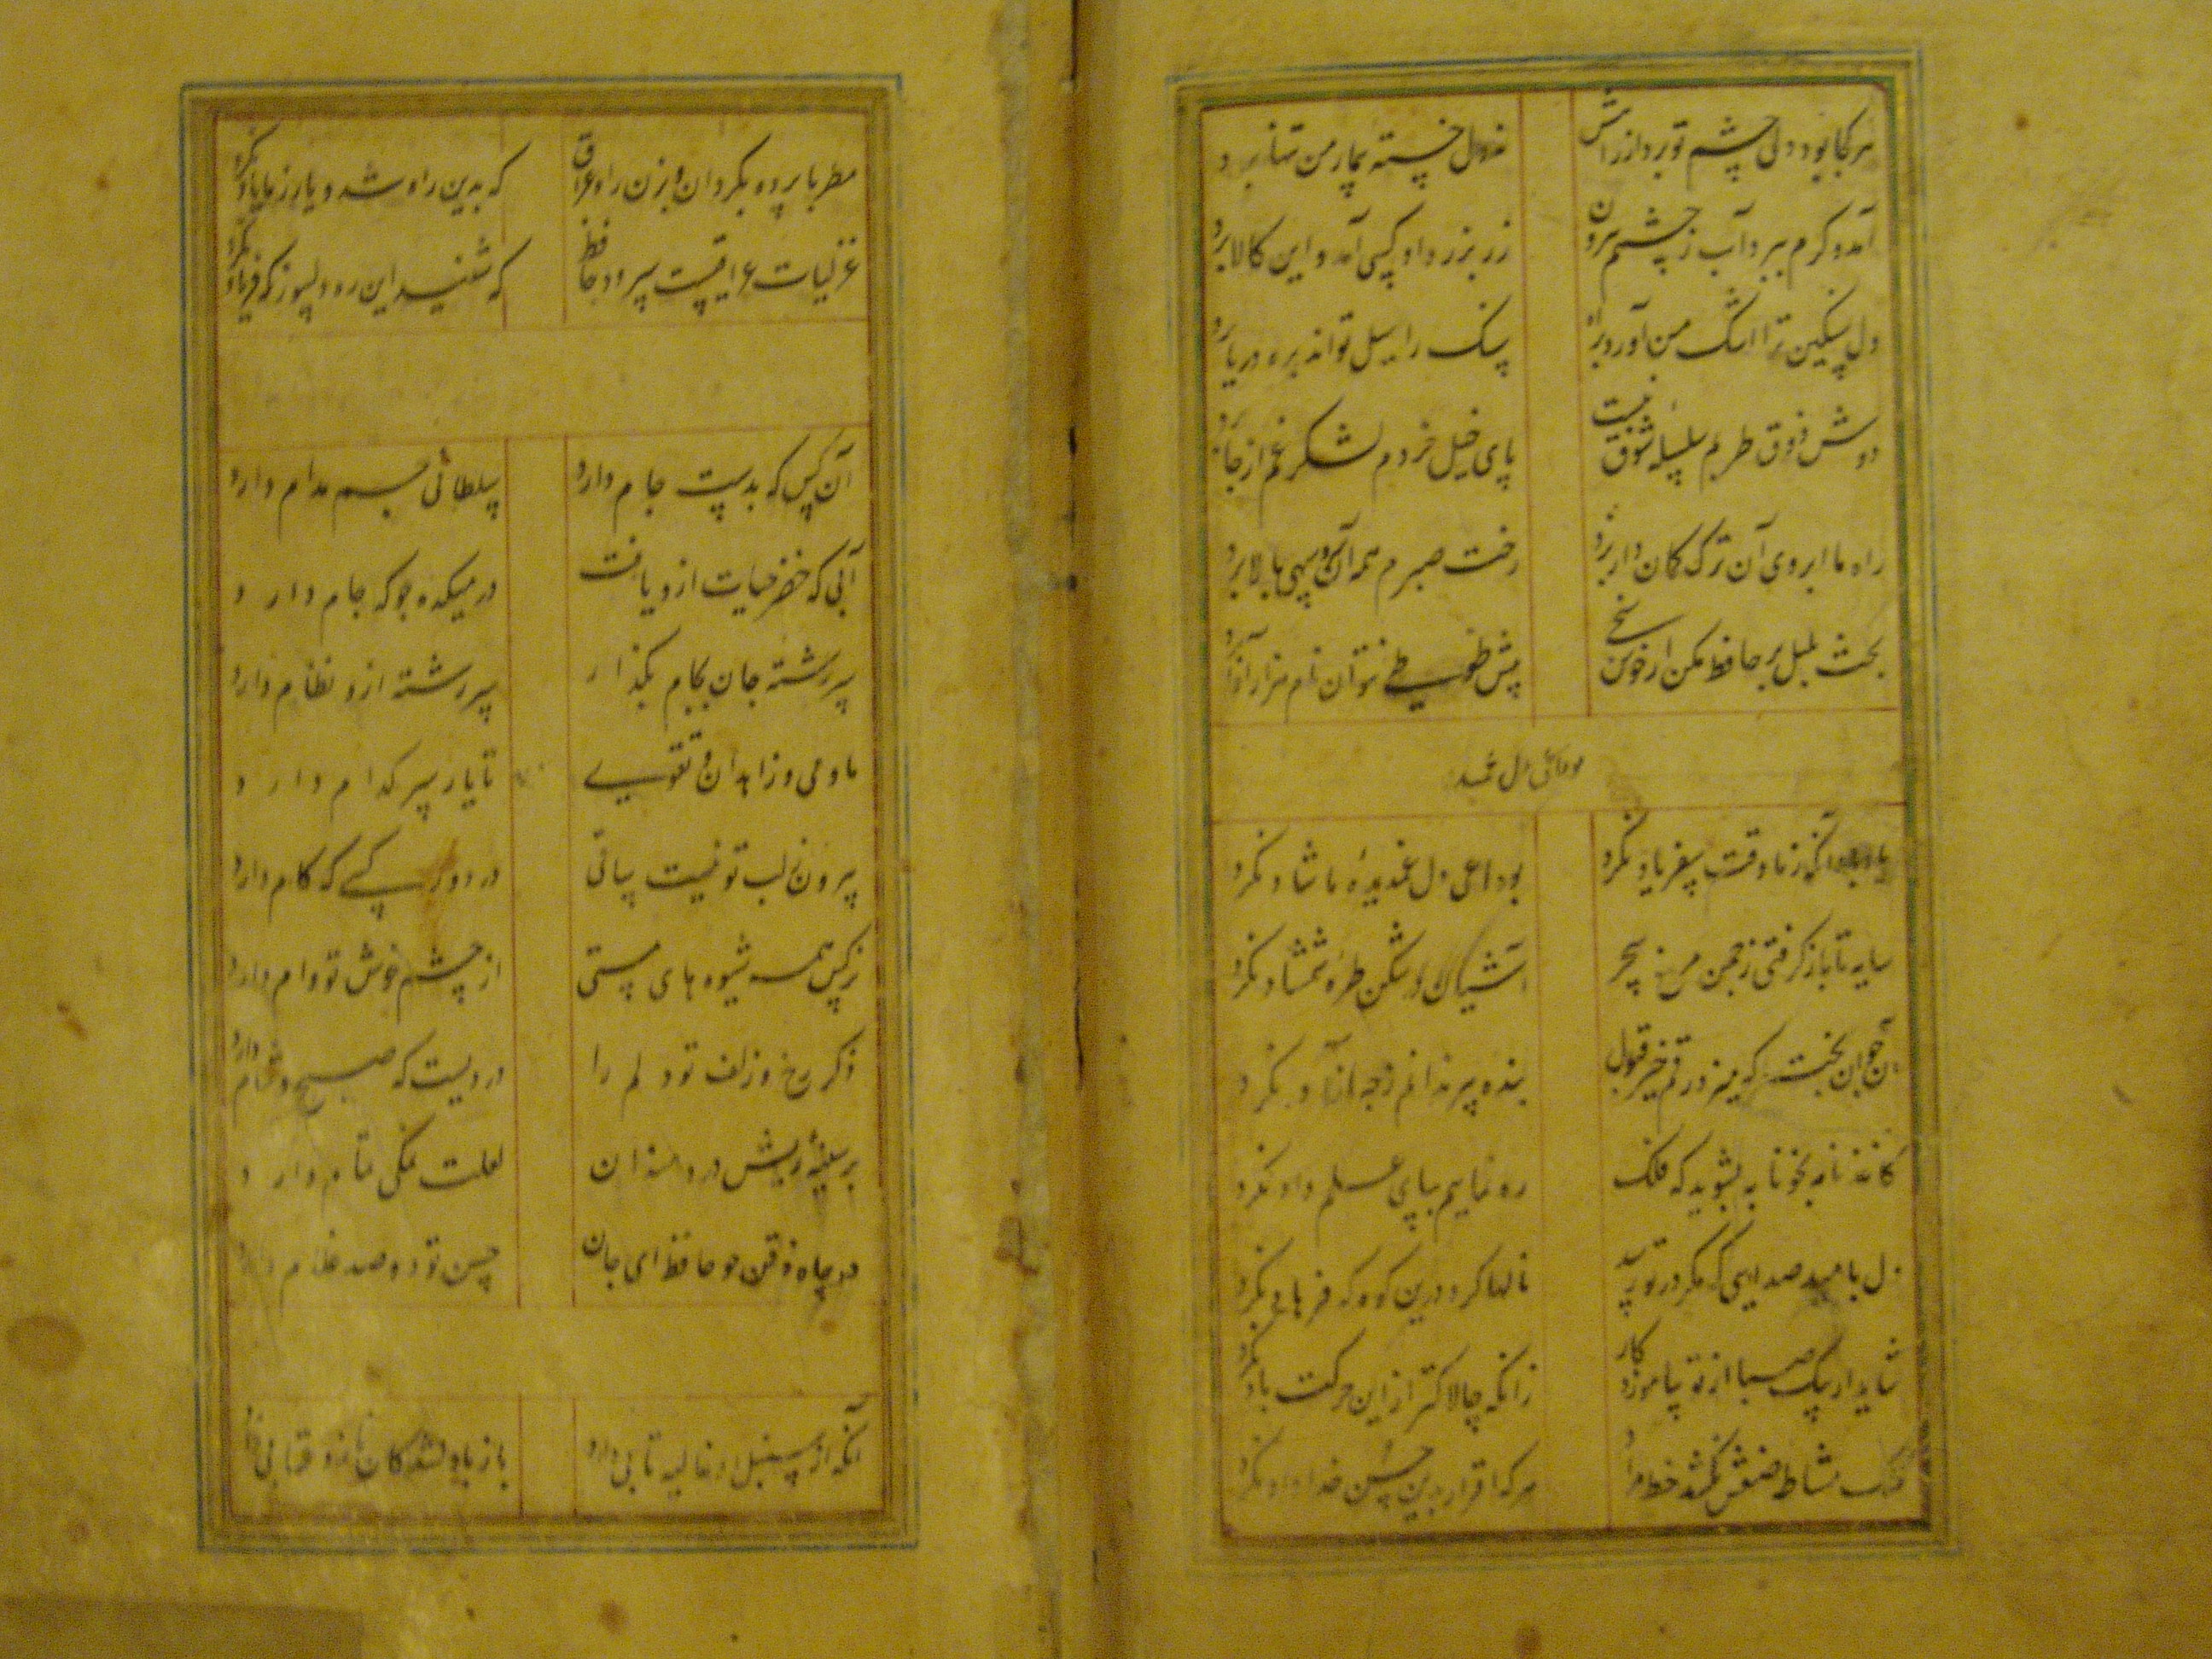 هر کجا بود دلی چشم تو برد از راهش نه دل خسته بیمار من تنها برد
آمد و گرم ببرد آب ز چشمم بیرون زر بزر داد کسی آمد و این کالا برد
دل سنگین ترا اشک من آورد براه سنگ را سیل تواند بره دریا برد
دوش ذوق طربم سلسله شوق نبست پای خیل خردم لشکر غم از جا برد
راه ما ابروی آن ترک کمان دار بزد رخت صبرم همه آن سهی بالا برد
بحث بلبل بر حافظ مکن از خوش سخنی پیش طوطی نتوان نام هزار آوا برد
یاد باد آنکه ز ما وقت سفر یاد نکرد بوداعی دل غمدیدهٔ ما شاد نکرد
سایه تا باز گرفتی ز چمن مرغ سحر آشیان در شکن طرهٔ شمشاد نکرد
آن جوان بخت که میزد رقم خیر قبول بنده پیر ندانم ز چه آزاد نکرد
کاغذ نامه بخونابه بشوید که فلک ره نماییم بپای علم داد نکرد
دل بامید صدایی که مگر در تو رسد نالها کرد درین کوه که فرهاد نکرد
شاید ار پیک صبا از تو بیاموزد کار زانکه چالاکتر ازین حرکت باد نکرد
کلک مشاطه صنعش نکشد خط مراد هر که اقرار بدین حسن خداداد نکرد
مطربا پرده بگردان و بزن راه عراق که بدین راه شد و یار ز ما یاد نکرد
غزلیات عراقیست سرود حافظ که شنید این ره دلسوز که فریاد نکرد
آن کس که بدست جام دارد سلطانی جم مدام دارد
آبی که خضر حیات ازو یافت در میکده جو که جام دارد
سررشته جان بجام بگذار سررشته ازو نظام دارد
ما و می و زاهدان و تقوی تا یار سر کدام دارد
بیرون ز لب تو نیست ساقی در دور کسی که کام دارد
نرگس همه شیوه های مستی از چشم خوش تو وام دارد
ذکر رخ و زلف تو دلم را دردیست که صبح و شام دارد
بر سینهٔ ریش دردمندان لعلت نمکی تمام دارد
در چاه ذقن چو حافظ ای جان حسن تو دو صد غلام دارد
آنکه از سنبل او غالیه تابی دارد باز با دلشدگان ناز و عتابی دارد